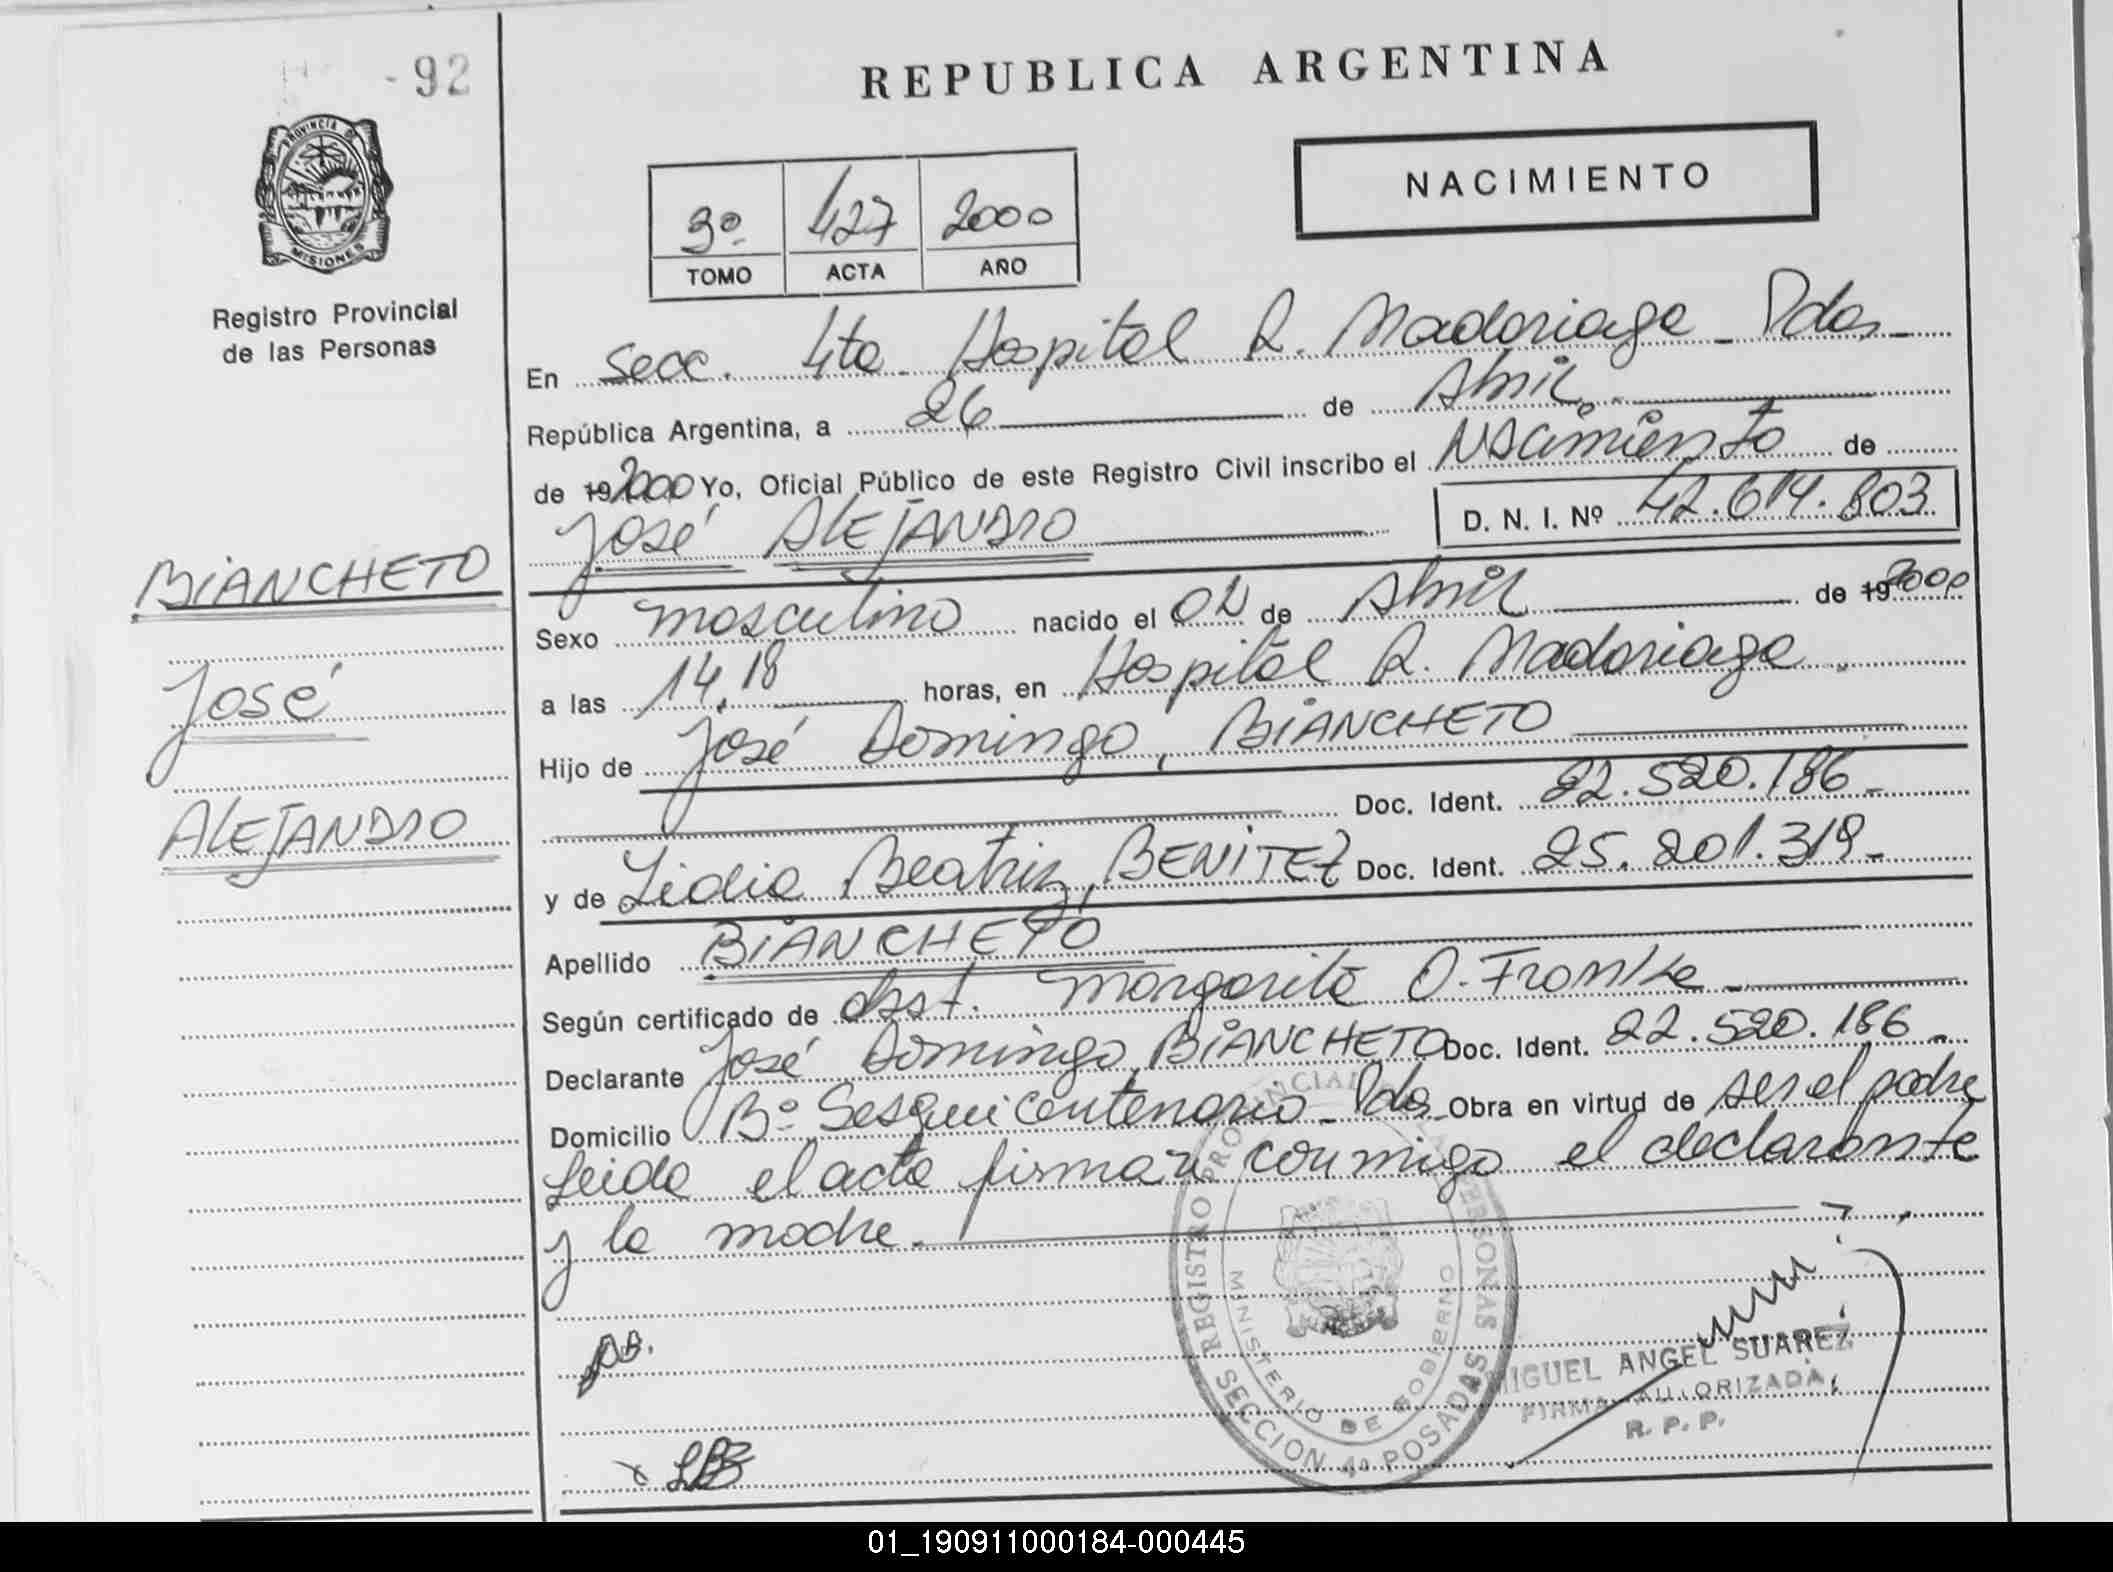 -92
REPUBLICA ARGENTINA
PROVINCIA DE
MISIONES
Registro Provincial
de las Personas
3º 427 2000
TOMO ACTA AÑO
NACIMIENTO
En Secc. 4ta Hospital R. Madariaga - Pdas -
República Argentina, a 26 de Abril
de 19 2000 Yo, Oficial Público de este Registro Civil inscribo el Nacimiento de
José ALEJANDRO D. N. I. Nº 42.614.803
BIANCHETO
José
ALEJANDRO
Sexo masculino nacido el 02 de Abril de 19 2000
a las 14,18 horas, en Hospital R. Madariaga
Hijo de José Domingo, BIANCHETO
Doc. Ident. 22.520.186 -
y de Lidia Beatriz, BENITEZ Doc. Ident. 25.201.319 -
Apellido BIANCHETO
Según certificado de Obst. Margarita O. Fromke -
Declarante José Domingo, BIANCHETO Doc. Ident. 22.520.186 -
Domicilio Bº Sesquicentenario - Pdas Obra en virtud de ser el padre
Leida el acta firman conmigo el declarante
y la madre.
REGISTRO PROVINCIAL DE LAS PERSONAS
MINISTERIO DE GOBIERNO
SECCION 4ª POSADAS
MIGUEL ANGEL SUAREZ
FIRMA AUTORIZADA
R. P. P.
01_190911000184-000445